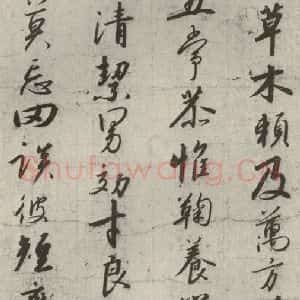 草木頼及萬方
五常恭惟鞠養
清絜男効才良
莫忘罔談彼短靡
Shufawang.Cn